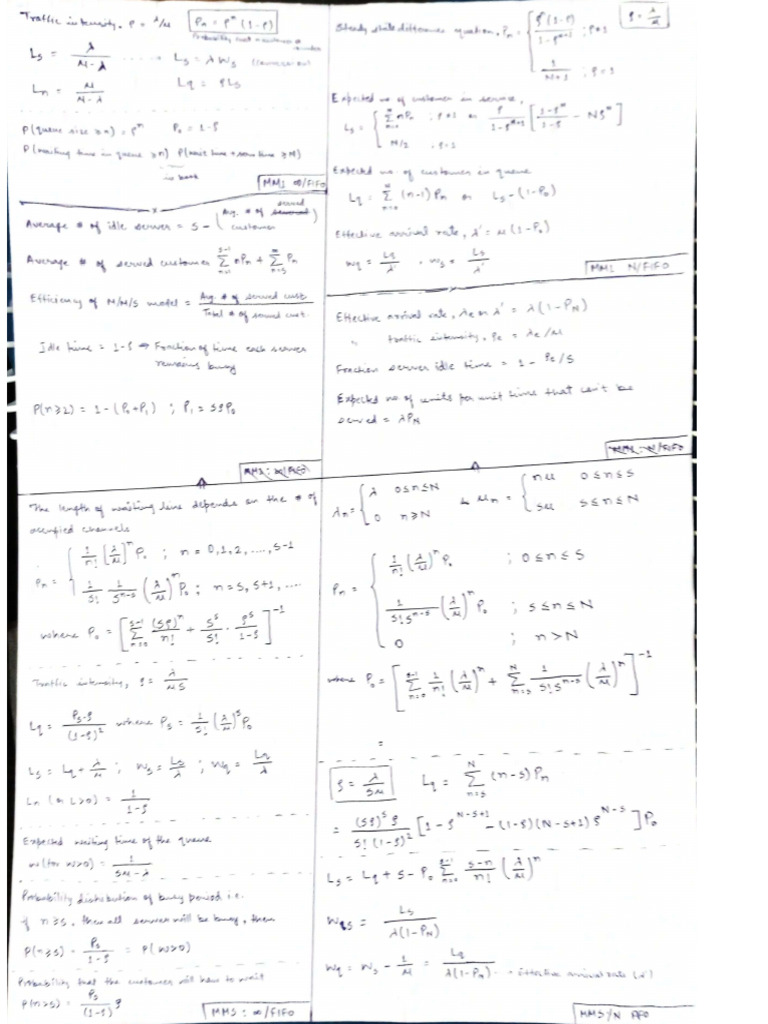 Traffic intensity, ρ = λ/μ
Pn = ρ^n (1-ρ)
Ls = λ / (μ-λ) ..... Ls = λWs
Ln = μ / (μ-λ)
Lq = ρLs
P(queue size ≥n) = ρ^n P₀ = 1-ρ
P(waiting time in queue ≥n)
MM1 ∞/FIFO
Average # of idle server = S - (Avg. # of served customer)
Average # of served customer Σ_{n=1}^{s-1} nPn + Σ_{n=s}^{∞} Pn
Efficiency of M/M/S model = Avg. # of served cust. / Total # of served cust.
Idle time = 1-ρ → Fraction of time each server
remains busy
P(n≥2) = 1-(P₀+P₁) ; P₁ = SρP₀
Steady state difference equation, Pn = { ρ^n(1-ρ) / (1-ρ^{N+1}) ; ρ≠1
1/(N+1) ; ρ=1
ρ = λ/μ
Expected no of customer in service,
Ls = { Σ_{n=0}^{N} nPn ; ρ≠1 or ρ/(1-ρ^{N+1}) [ (1-ρ^N)/(1-ρ) - Nρ^N ]
N/2 ; ρ=1
Expected no. of customer in queue
Lq = Σ (n-1) Pn or Ls-(1-P₀)
Effective arrival rate, λ' = μ(1-P₀)
Wq = Lq/λ' , Ws = Ls/λ'
MM1 N/FIFO
Effective arrival rate, λe or λ' = λ(1-PN)
" traffic intensity, ρe = λe/μ
Fraction server idle time = 1 - ρe/S
Expected no of units per unit time that can't be
served = λPN
The length of waiting line depends on the # of
occupied channels
Pn = { 1/n! [λ/μ]^n P₀ ; n = 0,1,2,....,S-1
1/S! 1/S^{n-s} (λ/μ)^n P₀ ; n=S, S+1, ....
where P₀ = [ Σ_{n=0}^{s-1} (Sρ)^n/n! + S^s/S! · ρ^s/(1-ρ) ]^{-1}
Traffic intensity, ρ = λ/μS
Lq = Ps·ρ/(1-ρ)² where Ps = 1/S! (λ/μ)^s P₀
Ls = Lq + λ/μ ; Ws = Ls/λ ; Wq = Lq/λ
Ln (or L>0) = 1/(1-ρ)
Expected waiting time of the queue
w(for w>0) = 1/(Sμ-λ)
Probability distribution of busy period i.e.
if n≥s, then all server will be busy, then
P(n≥s) = Ps/(1-ρ) = P(w>0)
Probability that the customer will have to wait
P(n>s) = Ps/(1-ρ) ρ
MMS : ∞/FIFO
λn = { λ 0≤n≤N
0 n≥N
& μn = { nμ 0≤n≤S
Sμ S≤n≤N
Pn = { 1/n! (λ/μ)^n P₀ ; 0≤n≤S
1/(S!S^{n-s}) (λ/μ)^n P₀ ; S≤n≤N
0 ; n>N
where P₀ = [ Σ_{n=0}^{s-1} 1/n! (λ/μ)^n + Σ_{n=s}^{N} 1/(S!S^{n-s}) (λ/μ)^n ]^{-1}
=
ρ = λ/Sμ Lq = Σ_{n=s}^{N} (n-s) Pn
= (Sρ)^s ρ / S!(1-ρ)² [1-ρ^{N-s+1} - (1-ρ)(N-s+1) ρ^{N-s}] P₀
Ls = Lq + S - P₀ Σ_{n=0}^{s-1} (s-n)/n! (λ/μ)^n
Ws = Ls / λ(1-PN)
Wq = Ws - 1/μ = Lq / λ(1-PN) → effective arrival rate (λ')
MMS/N FIFO